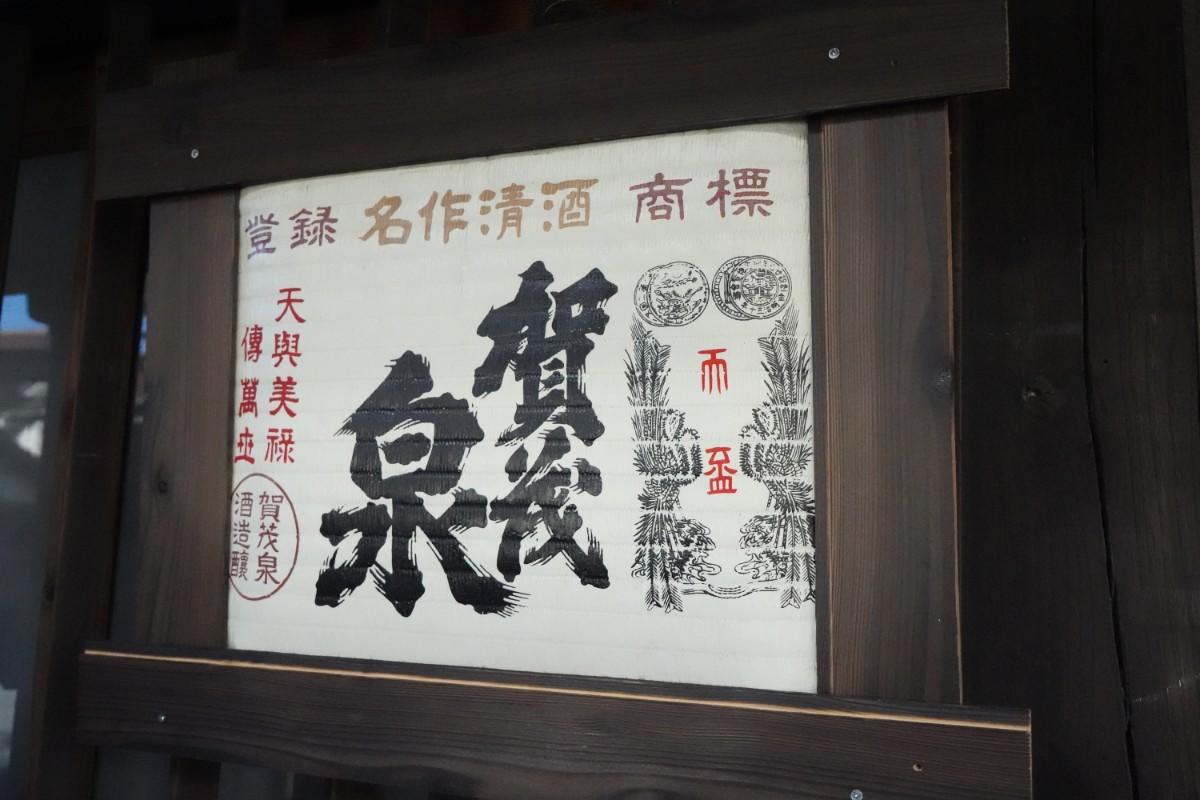 登録 名作清酒 商標
而
盃
賀茂
泉
天與美禄
傳萬世
賀茂泉
酒造醸